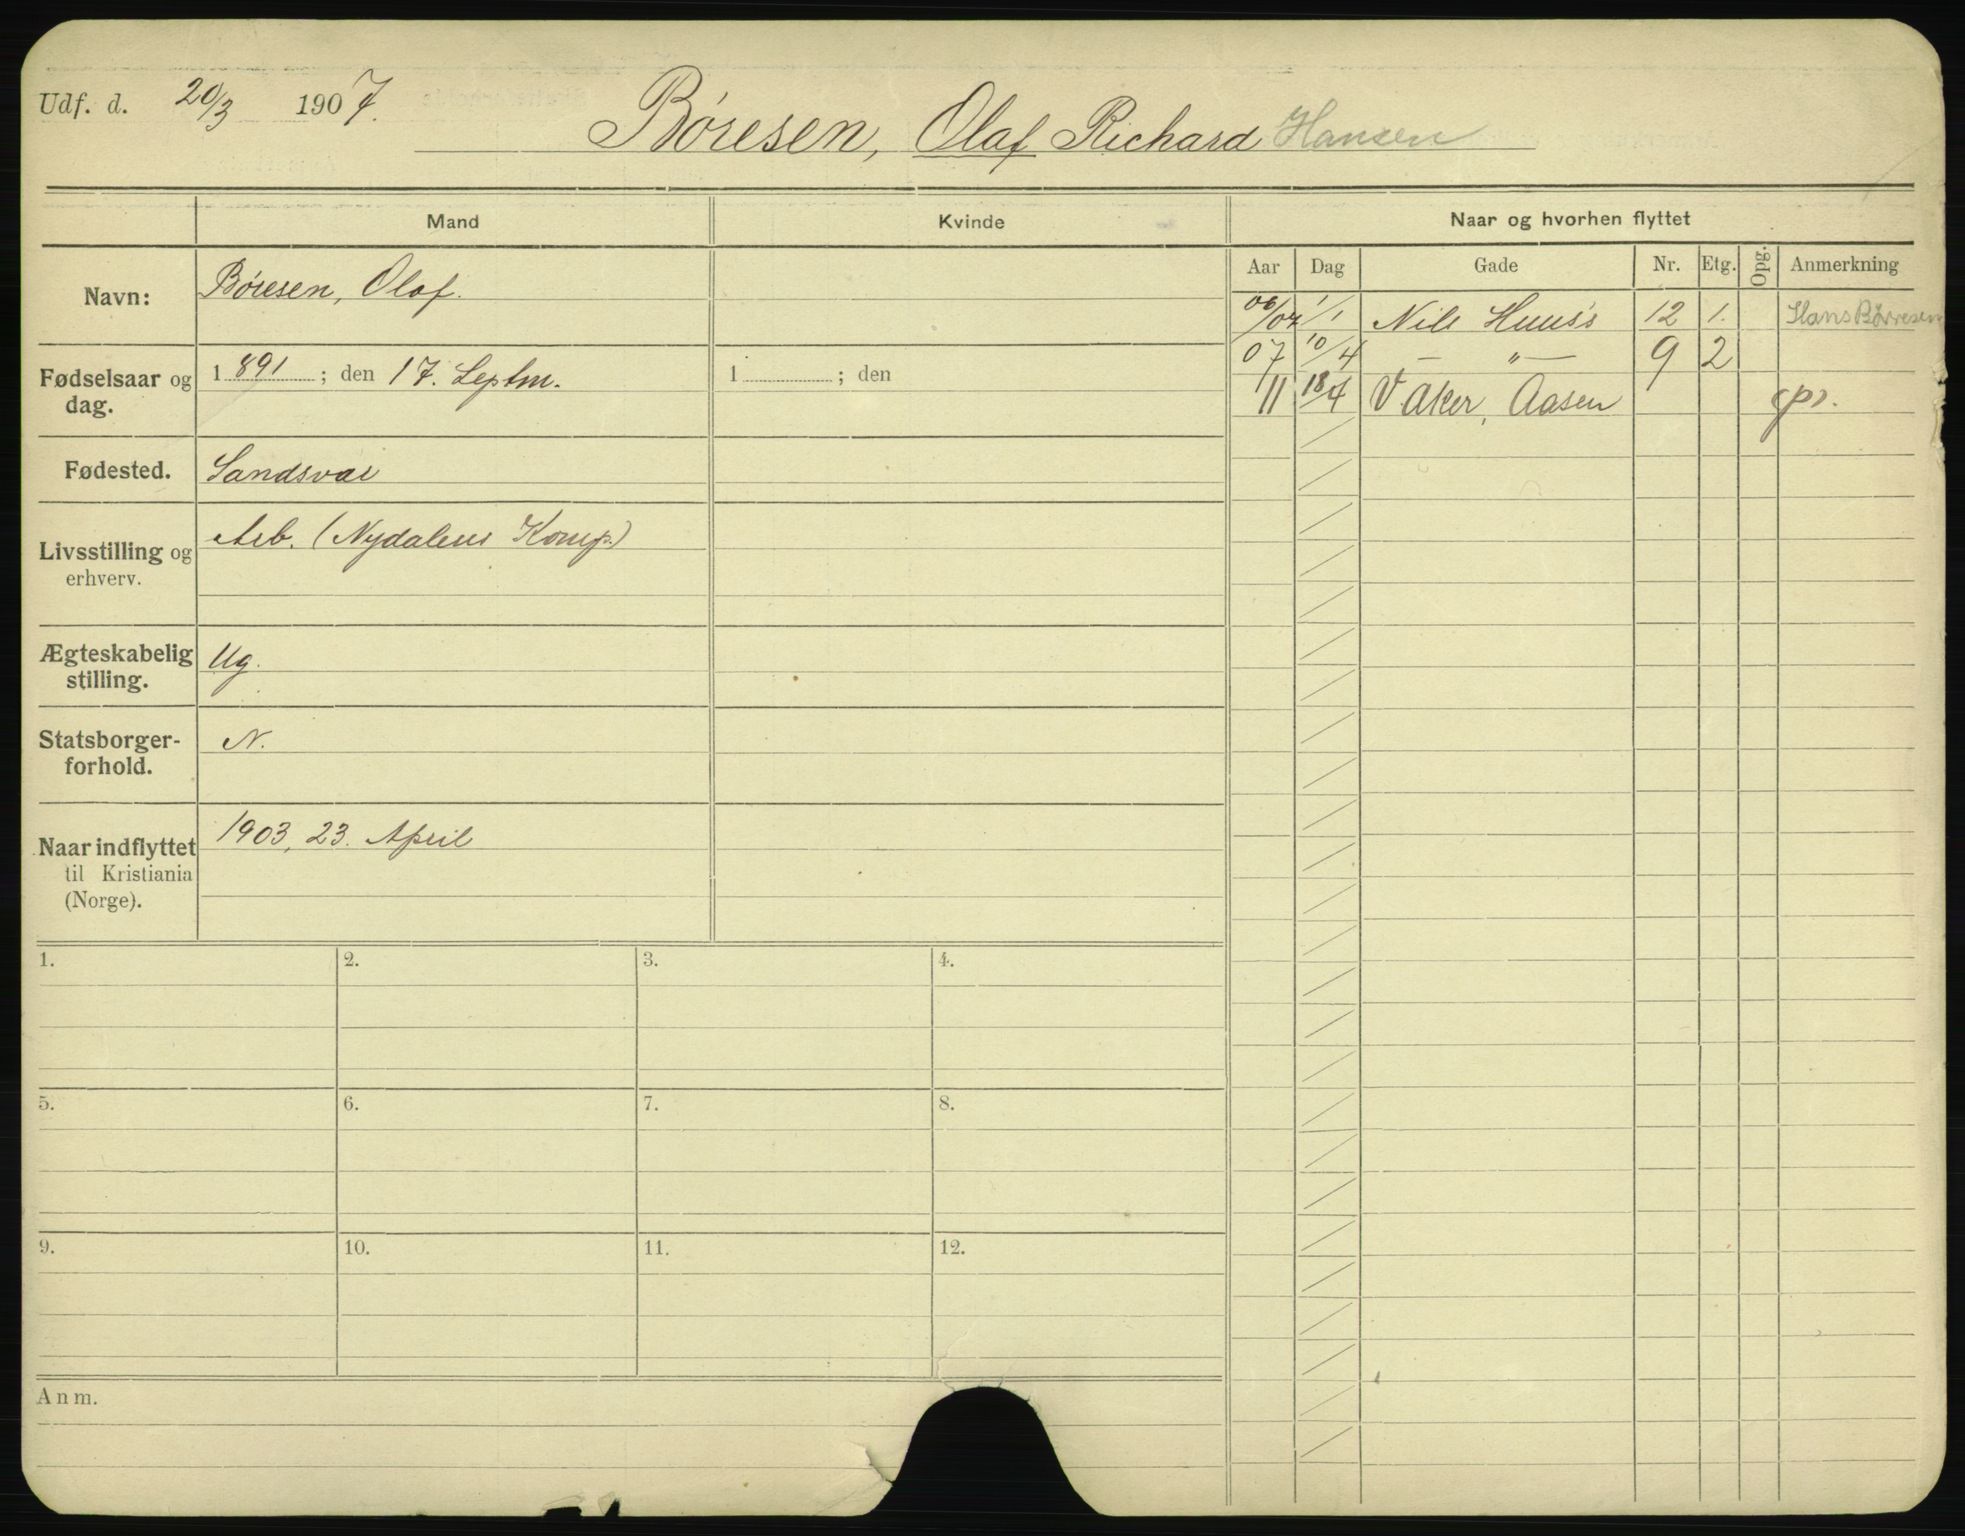 Udf. d. 20/3 1907.
Børesen, Olaf Richard Hansen
Mand
Kvinde
Naar og hvorhen flyttet
Navn:
Børesen, Olaf.
Fødselsaar og dag.
1891; den 17. Septm.
1 ; den
Fødested.
Sandsvær
Livsstilling og erhverv.
Arb. (Nydalens Komp.)
Ægteskabelig stilling.
Ug.
Statsborger-
forhold.
N.
Naar indflyttet
til Kristiania
(Norge).
1903, 23. April
Aar Dag Gade Nr. Etg. Opg. Anmerkning
06/07 1/1 Nils Huus's 12 1. Hans Børresen
07 10/4 — „ — 9 2
11 18/4 V. Aker, Aasen
1. 2. 3. 4.
5. 6. 7. 8.
9. 10. 11. 12.
Anm.